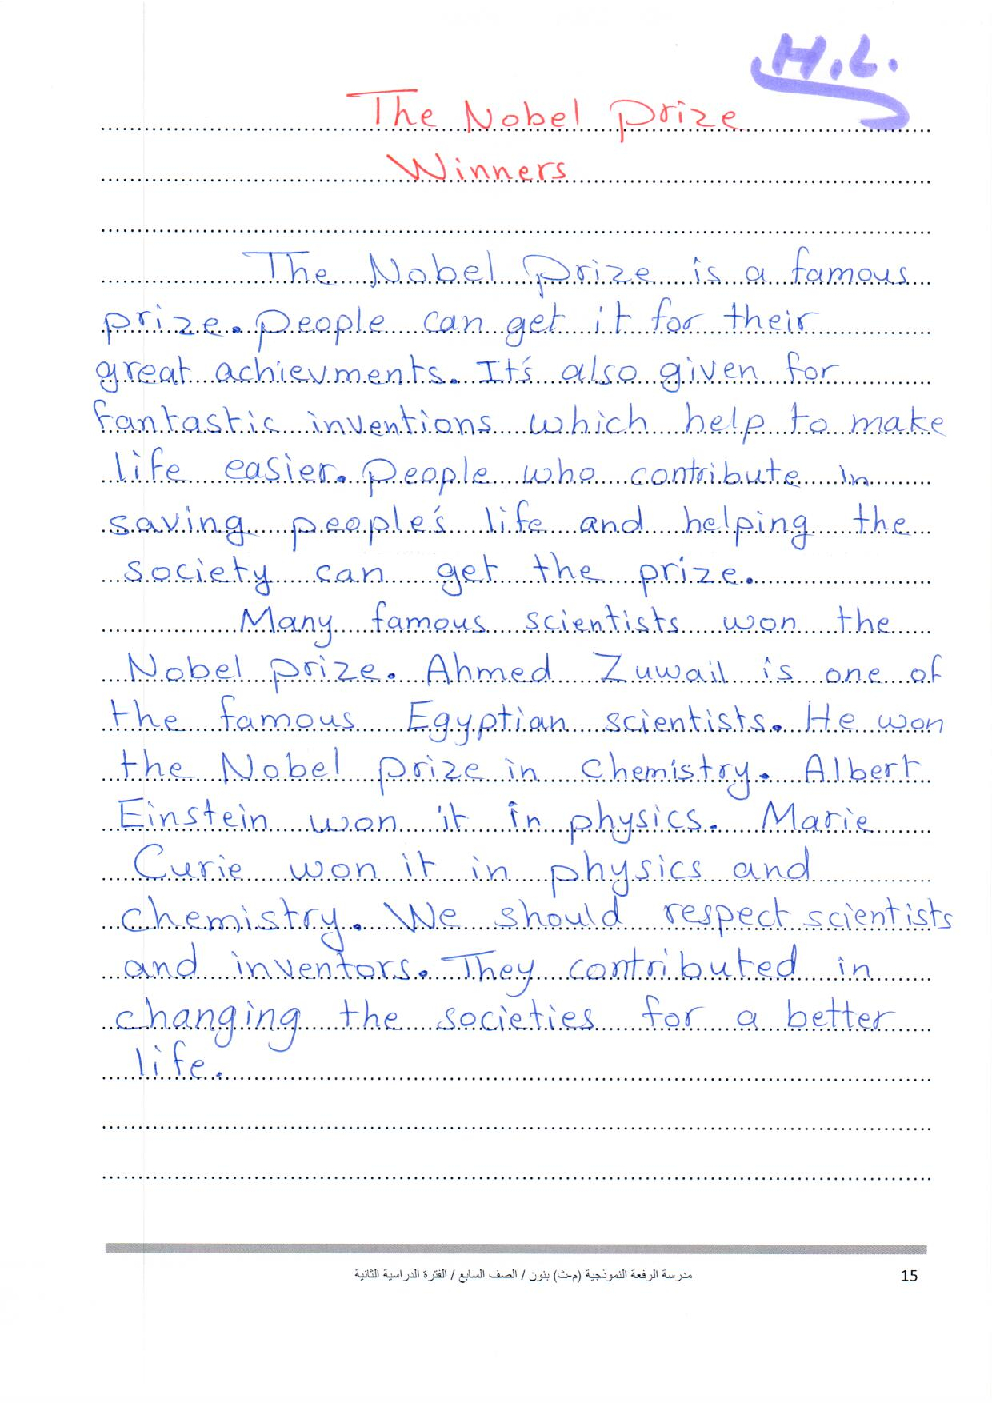 H.L.
The Nobel Prize
Winners
The Nobel Prize is a famous
prize. People can get it for their
great achievments. It's also given for
fantastic inventions which help to make
life easier. People who contribute in
saving people's life and helping the
society can get the prize.
Many famous scientists won the
Nobel prize. Ahmed Zuwail is one of
the famous Egyptian scientists. He won
the Nobel prize in chemistry. Albert
Einstein won it in physics. Marie
Curie won it in physics and
chemistry. We should respect scientists
and inventors. They contributed in
changing the societies for a better
life.
مدرسة الرفعة النموذجية (م-ث) بنون / الصف السابع / الفترة الدراسية الثانية
15